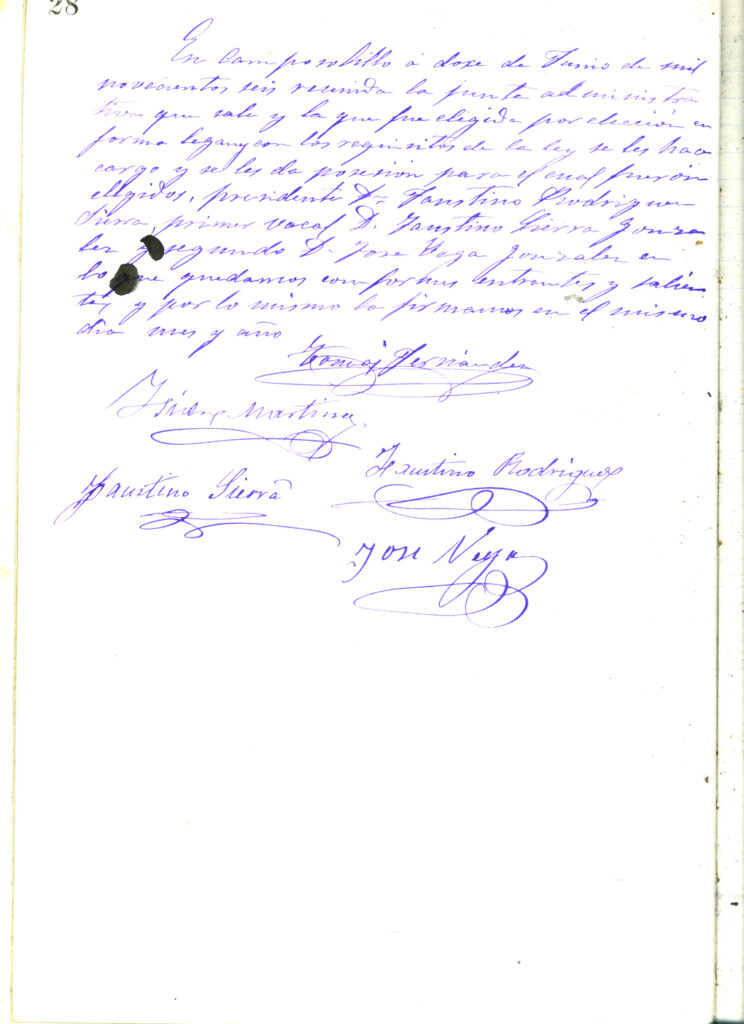 28
En Camposolillo á doxe de Junio de mil
novecientos seis reunida la junta administra
tiva que sale y la que fue elegida por elección en
forma legal y con los requisitos de la ley se les hace
cargo y se les da posesión para el cual fuerón
elegidos, presidente Dn Faustino Rodriguez
Sierra, primer vocal D. Faustino Sierra Gonza
lez y segundo D. Jose Vega Gonzalez en
lo que quedamos conformes entrantes y salien
tes, y por lo mismo la firmamos en el mismo
dia mes y año
Tomas Fernandez
Martinez
Faustino Rodriguez
Faustino Sierra
Jose Vega